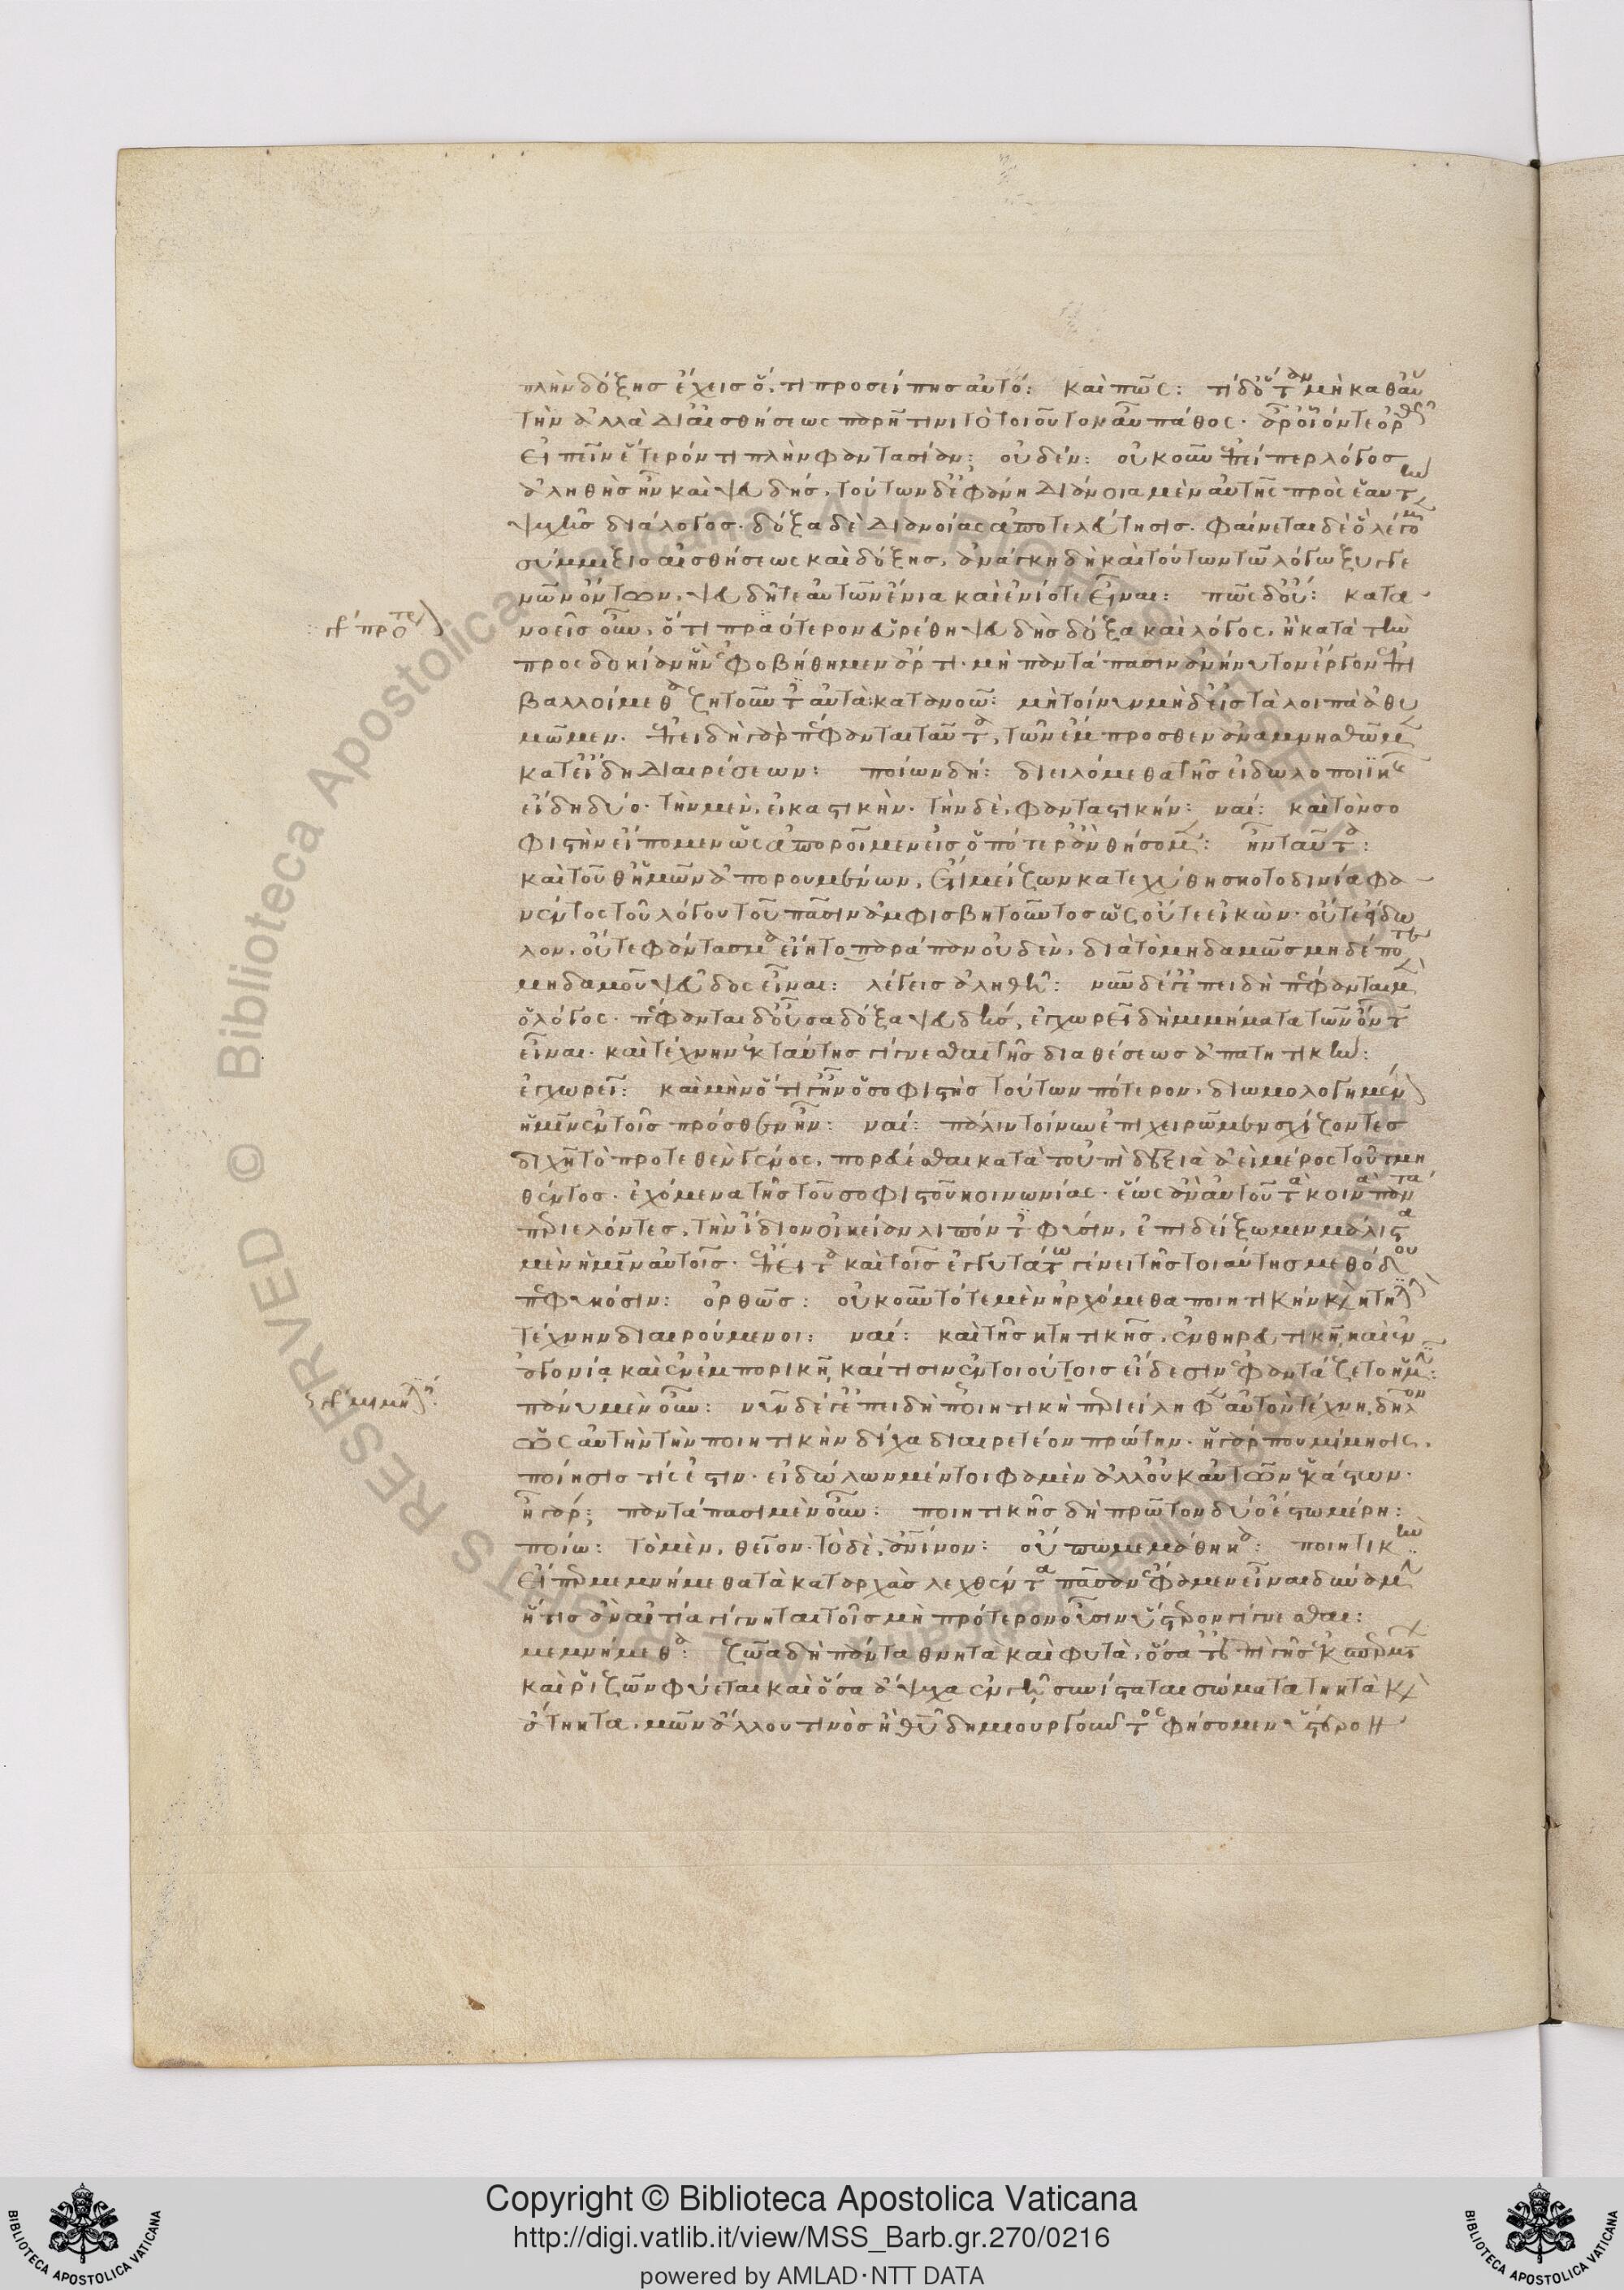 πλὴν δόξης ἔχεις ὅ, τι προσείπης αὐτό: καὶ πῶς: τί δ' ὅταν μὴ καθ' αὑ
τὴν ἀλλὰ δι' αἰσθήσεως παρῇ τινι τὸ τοιοῦτον αὖ πάθος· ἆρ' οἷόν τε ὀρθῶς
εἰπεῖν ἕτερόν τι πλὴν φαντασίαν; οὐδέν: οὐκοῦν ἐπείπερ λόγος
ἀληθὴς ἦν καὶ ψευδής, τούτων δ' ἐφάνη διάνοια μὲν αὐτῆς πρὸς ἑαυτὴν
ψυχῆς διάλογος· δόξα δὲ διανοίας ἀποτελεύτησις· φαίνεται δὲ ὃ λέγομεν
σύμμιξις αἰσθήσεως καὶ δόξης, ἀνάγκη δὴ καὶ τούτων τῷ λόγῳ ξυγγε
νῶν ὄντων, ψευδῆ τε αὐτῶν ἔνια καὶ ἐνίοτε εἶναι: πῶς δ' οὔ: κατα
νοεῖς οὖν, ὅτι πραότερον εὑρέθη ψευδὴς δόξα καὶ λόγος, ἢ κατὰ τὴν
προσδοκίαν ἣν ἐφοβήθημεν ἄρτι· μὴ παντάπασιν ἀνήνυτον ἔργον ἐπι
βαλλοίμεθα ζητοῦντες αὐτά: κατανοῶ: μὴ τοίνυν μηδ' εἰς τὰ λοιπὰ ἀθυ
μῶμεν. ἐπειδὴ γὰρ πέφανται ταῦτα, τῶν ἔμπροσθεν ἀναμνησθῶμεν
κατ' εἴδη διαιρέσεων: ποίων δή: διειλόμεθα τῆς εἰδωλοποιϊκῆς
εἴδη δύο· τὴν μὲν, εἰκαστικὴν· τὴν δὲ, φανταστικήν: ναί: καὶ τὸν σο
φιστὴν εἴπομεν ὡς ἀποροῖμεν εἰς ὁπότερ' ἂν θήσομεν: ἦν ταῦτα:
καὶ τοῦθ' ἡμῶν ἀπορουμένων, ἔτι μείζων κατεχύθη σκοτοδινία φα
νέντος τοῦ λόγου τοῦ πᾶσιν ἀμφισβητοῦντος ὡς οὔτε εἰκὼν· οὔτε εἴδω
λον, οὔτε φάντασμα εἴη τοπαράπαν οὐδὲν, διὰ τὸ μηδαμῶς μηδέποτε
μηδαμοῦ ψεῦδος εἶναι: λέγεις ἀληθῆ: νῦν δέ γ' ἐπειδὴ πέφανται μὲν
ὁ λόγος· πέφανται δ' οὖσα δόξα ψευδής, ἐγχωρεῖ δὴ μιμήματα τῶν ὄντων
εἶναι· καὶ τέχνην ἐκ ταύτης γίγνεσθαι τῆς διαθέσεως ἀπατητικήν:
ἐγχωρεῖ: καὶ μὴν ὅτι γ' ἦν ὁ σοφιστὴς τούτων πότερον, διωμολογημένον
ἡμῖν ἐν τοῖς πρόσθεν ἦν: ναί: πάλιν τοίνυν ἐπιχειρῶμεν σχίζοντες
διχῇ τὸ προτεθὲν γένος, πορεύεσθαι κατὰ τοὐπὶ δεξιὰ ἀεὶ μέρος τοῦ τμη
θέντος· ἐχόμενα τῆς τοῦ σοφιστοῦ κοινωνίας· ἕως ἂν αὐτοῦ τὰ κοινὰ πάντα
περιελόντες, τὴν ἴδιον οἰκείαν λιπόντες φύσιν, ἐπιδείξωμεν μάλιστα
μὲν ἡμῖν αὐτοῖς· ἔπειτα καὶ τοῖς ἐγγυτάτω γένει τῆς τοιαύτης μεθόδου
πεφυκόσιν: ὀρθῶς: οὐκοῦν τότε μὲν ἠρχόμεθα ποιητικὴν καὶ κτητικὴν
τέχνην διαιρούμενοι: ναί: καὶ τῆς κτητικῆς, ἐν θηρευτικῇ καὶ ἐν
ἀγωνίᾳ καὶ ἐν ἐμπορικῇ καί τισιν ἐν τοιούτοις εἴδεσιν ἐφαντάζετο ἡμῖν:
πάνυ μὲν οὖν: νῦν δέ γ' ἐπειδὴ ποιητικὴ περιείληφεν αὐτὸν τέχνη, δῆλον
ὡς αὐτὴν τὴν ποιητικὴν δίχα διαιρετέον πρώτην· ἡ γάρ που μίμησις,
ποίησις τίς ἐστιν· εἰδώλων μέντοι φαμὲν ἀλλ' οὐκ αὐτῶν ἑκάστων·
ἦ γάρ; παντάπασι μὲν οὖν: ποιητικῆς δὴ πρῶτον δύο ἔστω μέρη:
ποίω: τὸ μὲν, θεῖον· τὸ δὲ, ἀνίνον: οὔπω μεμάθηκα: ποιητικὴν
εἴπερ μεμνήμεθα τὰ κατ' ἀρχὰς λεχθέντα πᾶσαν ἔφαμεν εἶναι δύναμιν
ἥτις ἂν αἰτία γίγνηται τοῖς μὴ πρότερον οὖσιν ὕστερον γίγνεσθαι:
μεμνήμεθα: ζῶα δὴ πάντα θνητὰ καὶ φυτὰ, ὅσα τ' ἐπὶ γῆς ἐκ σπερμάτων
καὶ ῥιζῶν φύεται καὶ ὅσα ἄψυχα ἐν γῇ συνίσταται σώματα τηκτὰ καὶ
ἄτηκτα, μῶν ἄλλου τινὸς ἢ θεοῦ δημιουργοῦντος φήσομεν ὕστερον